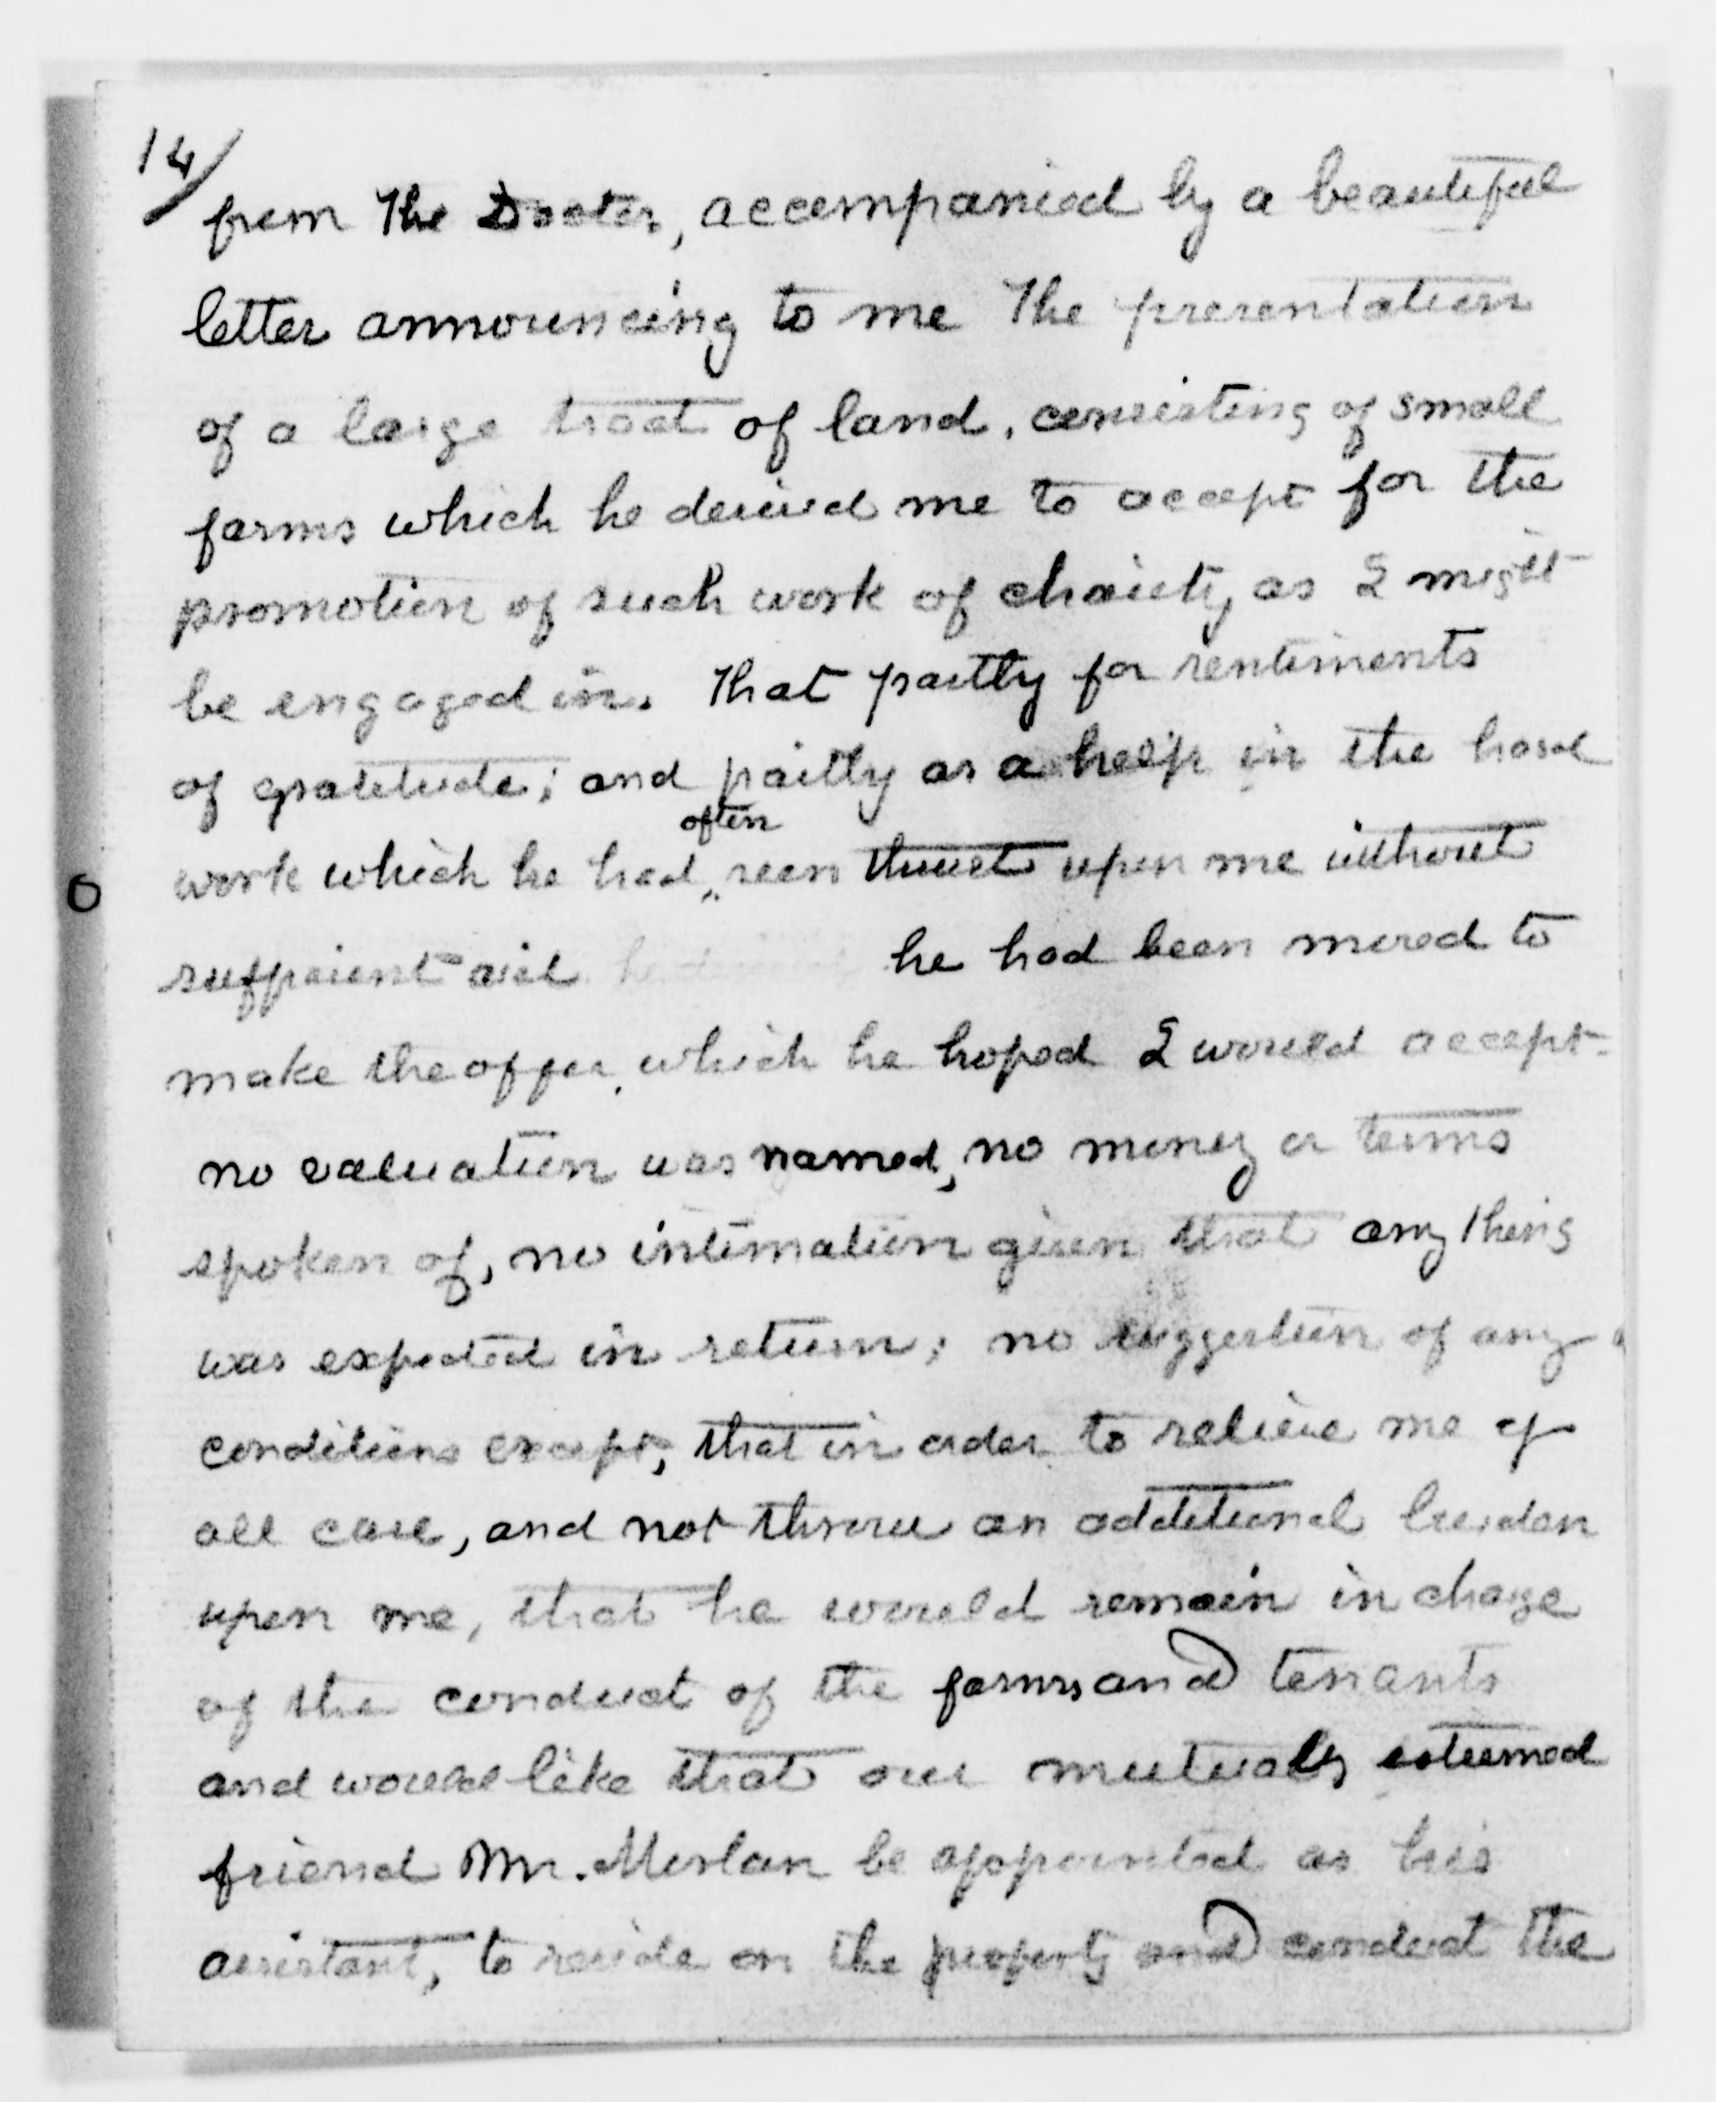 14/
from the Doctor, accompanied by a beautiful
letter announcing to me the presentation
of a large tract of land, consisting of small
farms which he desired me to accept for the
promotion of such work of charity as I might
be engaged in. That partly for sentiments
of gratitude; and partly as a help in the hard
often
work which he had seen thrust upon me without
sufficient aid he had been moved to
make the offer, which he hoped I would accept.
no valuation was named, no money or terms
spoken of, no intimation given that any thing
was expected in return; no suggestion of any
conditions except, that in order to relieve me of
all care, and not throw an additional burden
upon me, that he would remain in charge
of the conduct of the farms and tenants
and would like that our mutually esteemed
friend Mr. Merlan be appointed as his
assistant, to reside on the property and conduct the